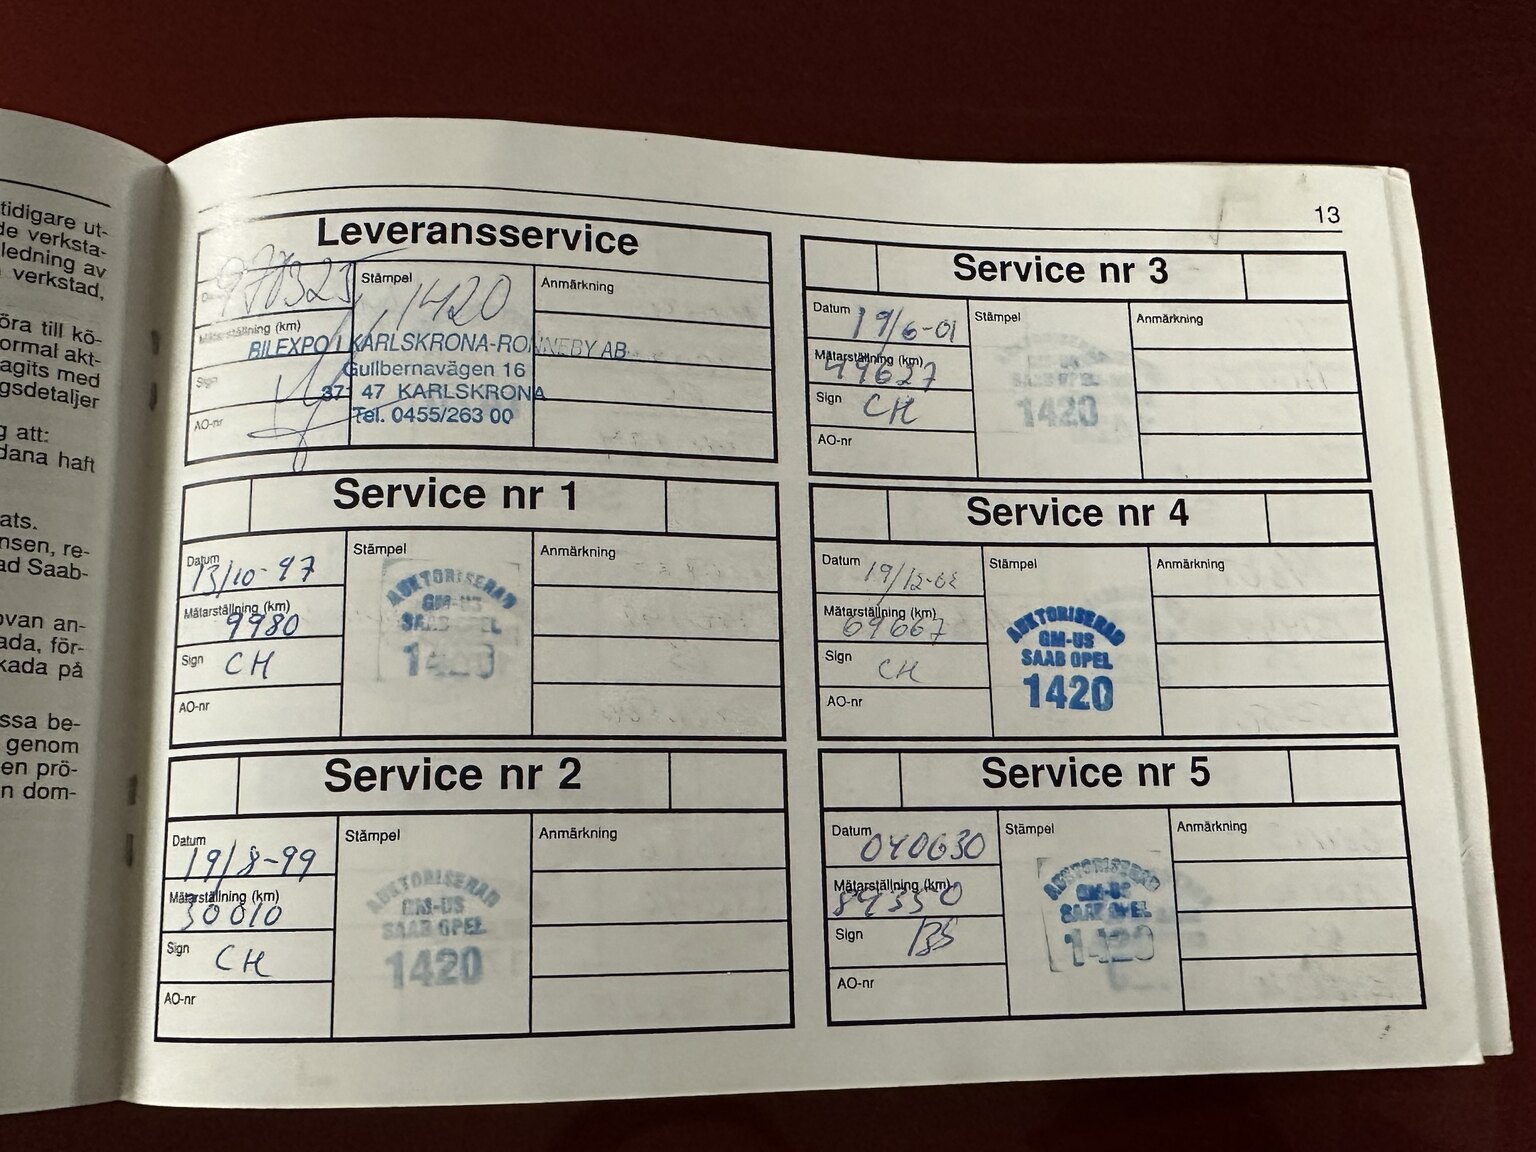 tidigare ut-
de verksta-
ledning av
verkstad,
öra till kö-
ormal akt-
agits med
gsdetaljer
g att:
dana haft
ats.
nsen, re-
ad Saab-
ovan an-
ada, för-
kada på
ssa be-
genom
en prö-
n dom-
13
Leveransservice
970325
Stämpel
1420
Anmärkning
Mätarställning (km)
BILEXPO I KARLSKRONA-RONNEBY AB
Gullbernavägen 16
Sign
371 47 KARLSKRONA
Tel. 0455/263 00
AO-nr
Service nr 1
Datum
13/10-97
Stämpel
Anmärkning
Mätarställning (km)
9980
Sign CH
AO-nr
AUKTORISERAD
GM-US
SAAB OPEL
1420
Service nr 2
Datum
19/8-99
Stämpel
Anmärkning
Mätarställning (km)
30010
Sign CH
AO-nr
AUKTORISERAD
GM-US
SAAB OPEL
1420
Service nr 3
Datum
19/6-01
Stämpel
Anmärkning
Mätarställning (km)
49627
Sign CH
AO-nr
AUKTORISERAD
GM-US
SAAB OPEL
1420
Service nr 4
Datum
19/12-02
Stämpel
Anmärkning
Mätarställning (km)
69667
Sign CH
AO-nr
AUKTORISERAD
GM-US
SAAB OPEL
1420
Service nr 5
Datum
040630
Stämpel
Anmärkning
Mätarställning (km)
84350
Sign BS
AO-nr
AUKTORISERAD
GM-US
SAAB OPEL
1420